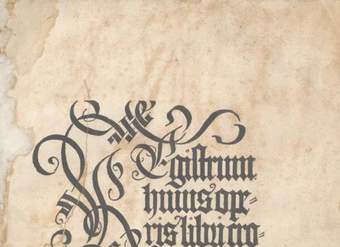 REgistrum
huius ope=
ris libri cro=